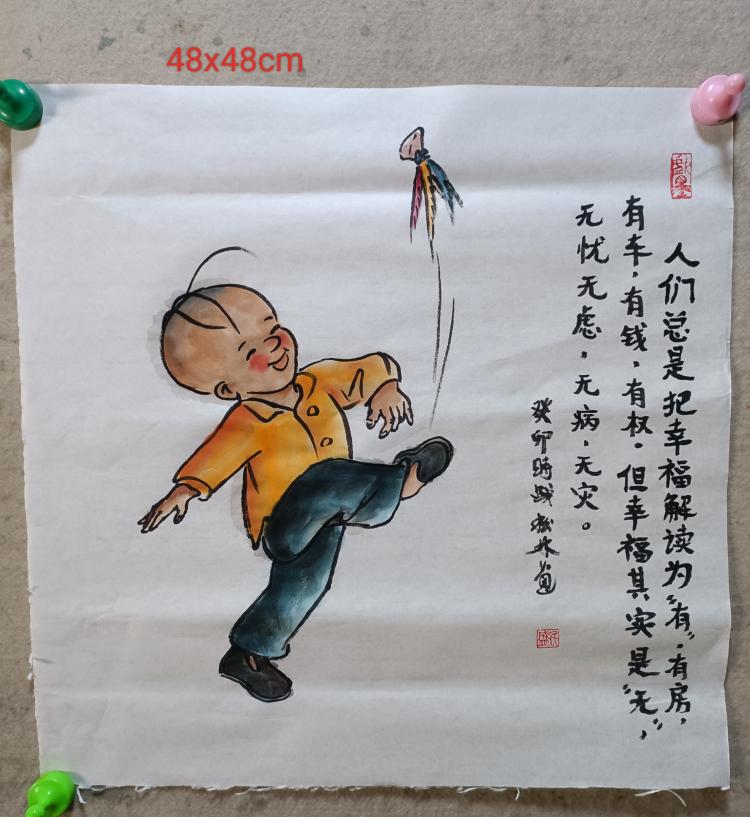 48x48cm
人们总是把幸福解读为“有”,有房,
有车,有钱,有权。但幸福其实是“无”,
无忧无虑,无病,无灾。
癸卯时战松林画